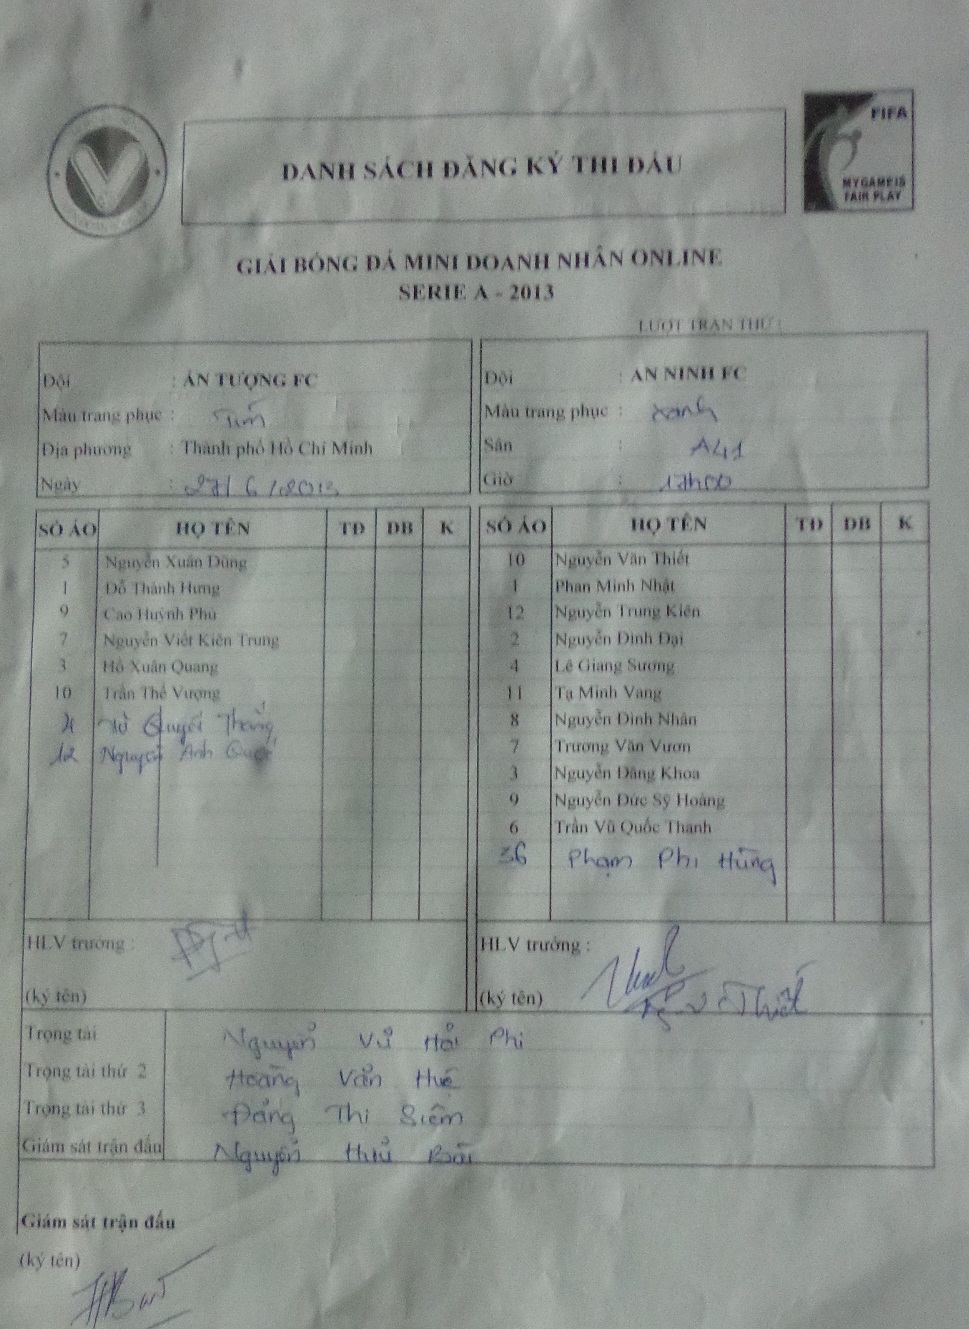 FIFA
MY GAME IS
FAIR PLAY
DANH SÁCH ĐĂNG KÝ THI ĐẤU
GIẢI BÓNG ĐÁ MINI DOANH NHÂN ONLINE
SERIE A - 2013
LƯỢT TRẬN THỨ :
Đội : ẤN TƯỢNG FC
Màu trang phục : Tím
Địa phương : Thành phố Hồ Chí Minh
Ngày : 27/6/2013
Đội : AN NINH FC
Màu trang phục : xanh
Sân : A41
Giờ : 17h00
SỐ ÁO HỌ TÊN TĐ ĐB K
5 Nguyễn Xuân Dũng
1 Đỗ Thành Hưng
9 Cao Huỳnh Phú
7 Nguyễn Viết Kiên Trung
3 Hồ Xuân Quang
10 Trần Thế Vượng
Quyết Thắng
12 Nguyễn Anh
HLV trưởng :
(ký tên)
SỐ ÁO HỌ TÊN TĐ ĐB K
10 Nguyễn Văn Thiết
1 Phan Minh Nhật
12 Nguyễn Trung Kiên
2 Nguyễn Đình Đại
4 Lê Giang Sương
11 Tạ Minh Vang
8 Nguyễn Đình Nhân
7 Trương Văn Vươn
3 Nguyễn Đăng Khoa
9 Nguyễn Đức Sỹ Hoàng
6 Trần Vũ Quốc Thanh
36 Phạm Phi Hùng
HLV trưởng :
(ký tên)
Trọng tài Nguyễn Vũ Hải Phi
Trọng tài thứ 2 Hoàng Văn Huệ
Trọng tài thứ 3 Đặng Thi Siêm
Giám sát trận đấu Nguyễn Hữu
Giám sát trận đấu
(ký tên)